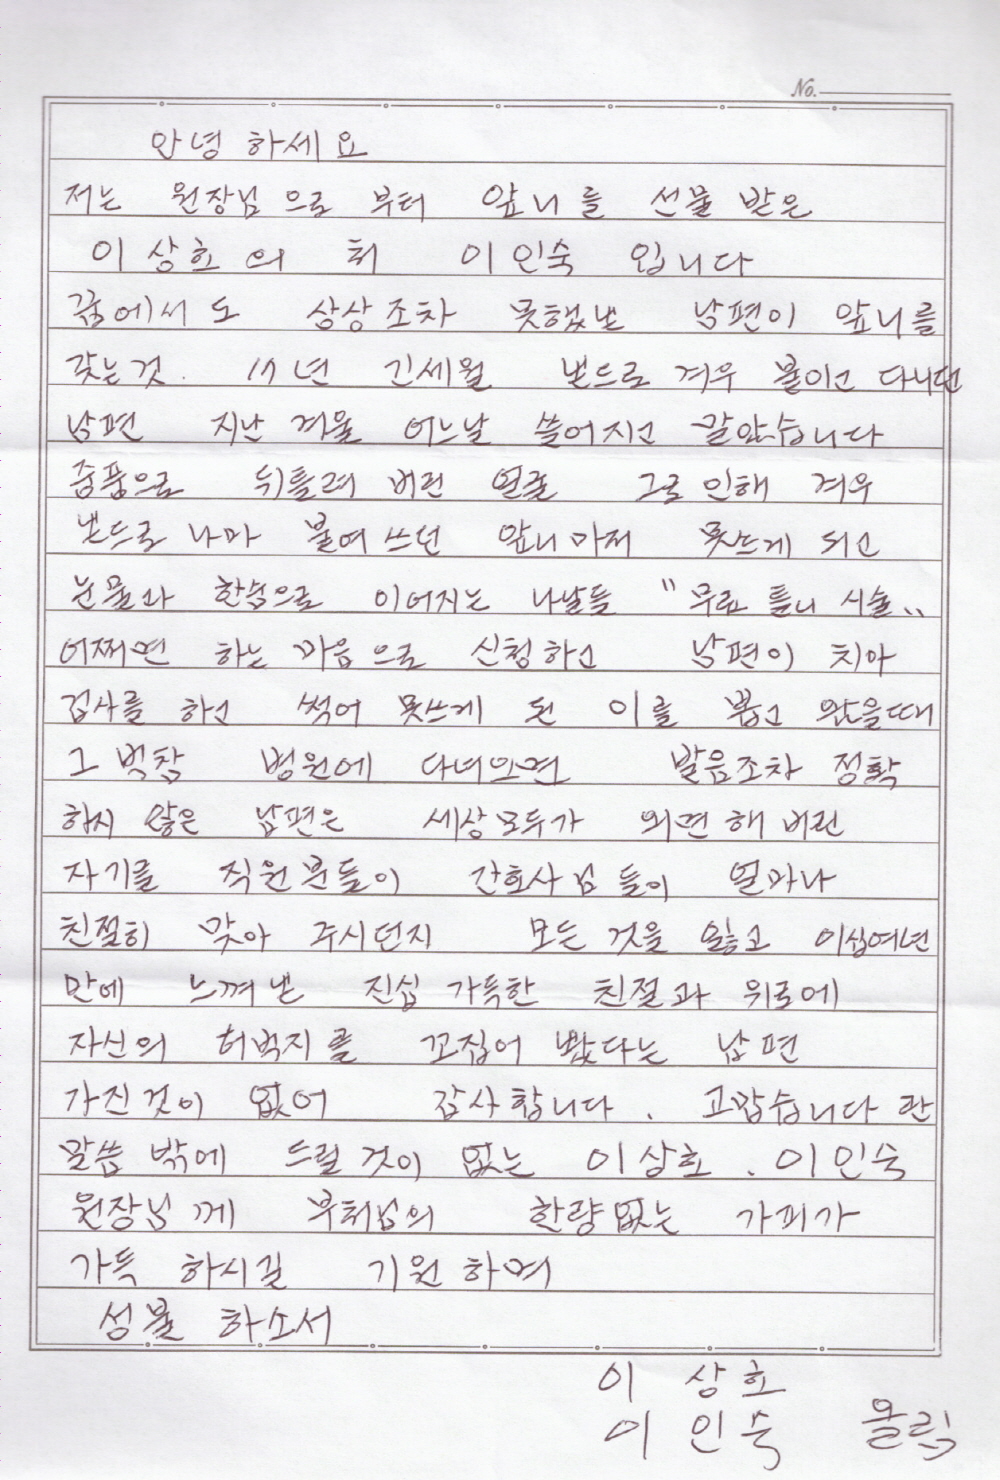 No.
안녕 하세요
저는 원장님 으로 부터 앞니를 선물 받은
이상호의 처 이인숙 입니다
꿈에서도 상상조차 못했던 남편이 앞니를
갖는것. 17년 긴세월 본드로 겨우 붙이고 다니던
남편 지난 겨울 어느날 쓸어지고 말았습니다
중풍으로 뒤틀려 버린 얼굴 그로인해 겨우
본드로나마 붙여쓰던 앞니마저 못쓰게 되고
눈물과 한숨으로 이어지는 나날들 "무료 틀니 시술"
어쩌면 하는 마음으로 신청하고 남편이 치아
검사를 하고 썩어 못쓰게 된 이를 뽑고 왔을때
그 벅참 병원에 다녀오면 발음조차 정확
하지 않은 남편은 세상모두가 외면해 버린
자기를 직원분들이 간호사님들이 얼마나
친절히 맞아 주시던지 모든 것을 잃고 이십여년
만에 느껴본 진심 가득한 친절과 위로에
자신의 허벅지를 꼬집어 봤다는 남편
가진것이 없어 감사합니다. 고맙습니다 란
말씀 밖에 드릴것이 없는 이상호. 이인숙
원장님께 부처님의 한량없는 가피가
가득 하시길 기원하며
성불 하소서
이 상호
이 인숙 올림